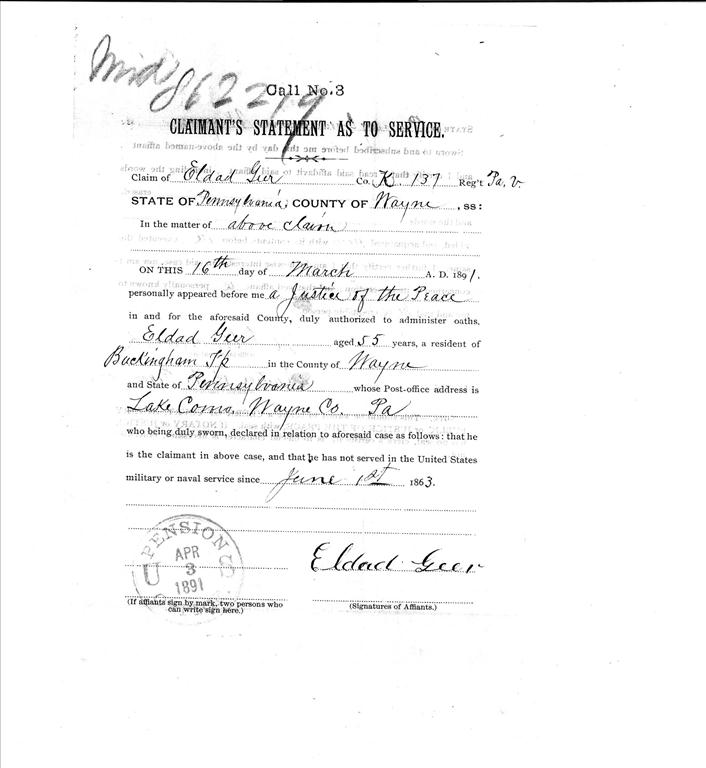 Mid 862219
Call No. 3
CLAIMANT'S STATEMENT AS TO SERVICE.
Claim of Eldad Geer Co. K. 137 Reg't Pa. V.
STATE OF Pennsylvania, COUNTY OF Wayne, ss:
In the matter of above claim
ON THIS 16th day of March A. D. 1891.
personally appeared before me a Justice of the Peace
in and for the aforesaid County, duly authorized to administer oaths,
Eldad Geer aged 55 years, a resident of
Buckingham Tp in the County of Wayne
and State of Pennsylvania whose Post-office address is
Lake Como, Wayne Co. Pa
who being duly sworn, declared in relation to aforesaid case as follows: that he
is the claimant in above case, and that he has not served in the United States
military or naval service since June 1st 1863.
Eldad Geer
U. S. PENSION
APR
3
1891
(If affiants sign by mark, two persons who
can write sign here.)
(Signatures of Affiants.)